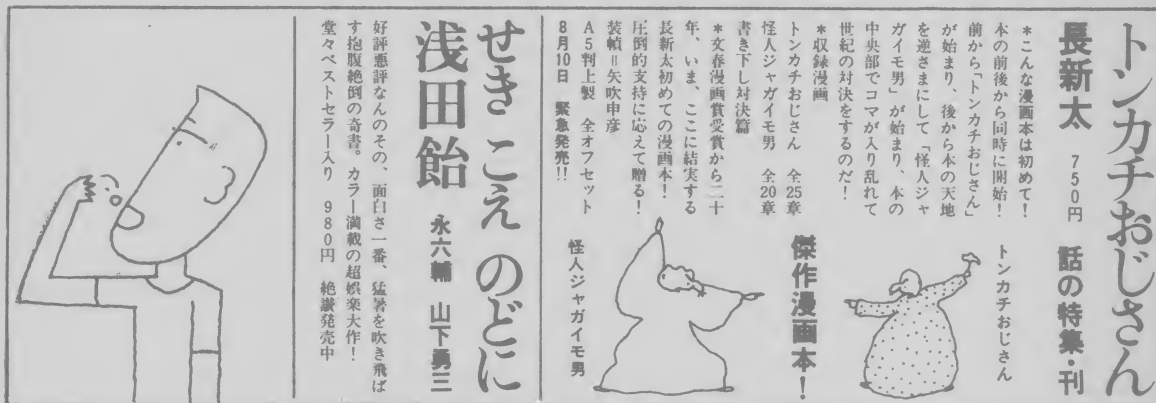 トンカチおじさん
長新太　750円　話の特集・刊
＊こんな漫画本は初めて！
本の前後から同時に開始！
前から「トンカチおじさん」
が始まり、後から本の天地
を逆さまにして「怪人ジャ
ガイモ男」が始まり、本の
中央部でコマが入り乱れて
世紀の対決をするのだ！
＊収録漫画
トンカチおじさん　全25章
怪人ジャガイモ男　全20章
書き下し対決篇
＊文春漫画賞受賞から二十
年、いま、ここに結実する
長新太初めての漫画本！
圧倒的支持に応えて贈る！
装幀＝矢吹申彦
A5判上製　全オフセット
8月10日　緊急発売！！
トンカチおじさん
傑作漫画本！
怪人ジャガイモ男
せき こえ のどに
浅田飴　永六輔　山下勇三
好評悪評なんのその、面白さ一番、猛暑を吹き飛ば
す抱腹絶倒の奇書。カラー満載の超娯楽大作！
堂々ベストセラー入り　980円　絶讃発売中